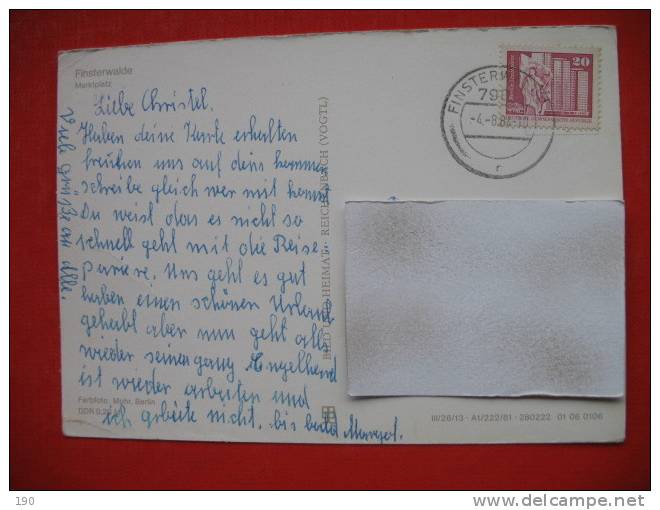 Finsterwalde
Marktplatz
Liebe Christel.
Haben deine Karte erhalten
freuhen uns auf deins kommen
schreibe gleich wer mit kommt
Du weist das es nicht so
schnell geht mit die Reise.
Uns geht es gut
haben einen schönen Urlaub
gehabt aber nun geht alls
wieder seinen gang Engelhard
ist wieder arbeiten und
ich arbeite nicht. bis bald
viele grüße an
alle.
Farbfoto: Mohr, Berlin
DDR 0,20 M
BILD UND HEIMAT REICHENBACH (VOGTL)
FINSTERW
-4.-8.8
20
III/26/13 · A1/222/81 · 280222 01 06 0106
190
www.delcampe.net